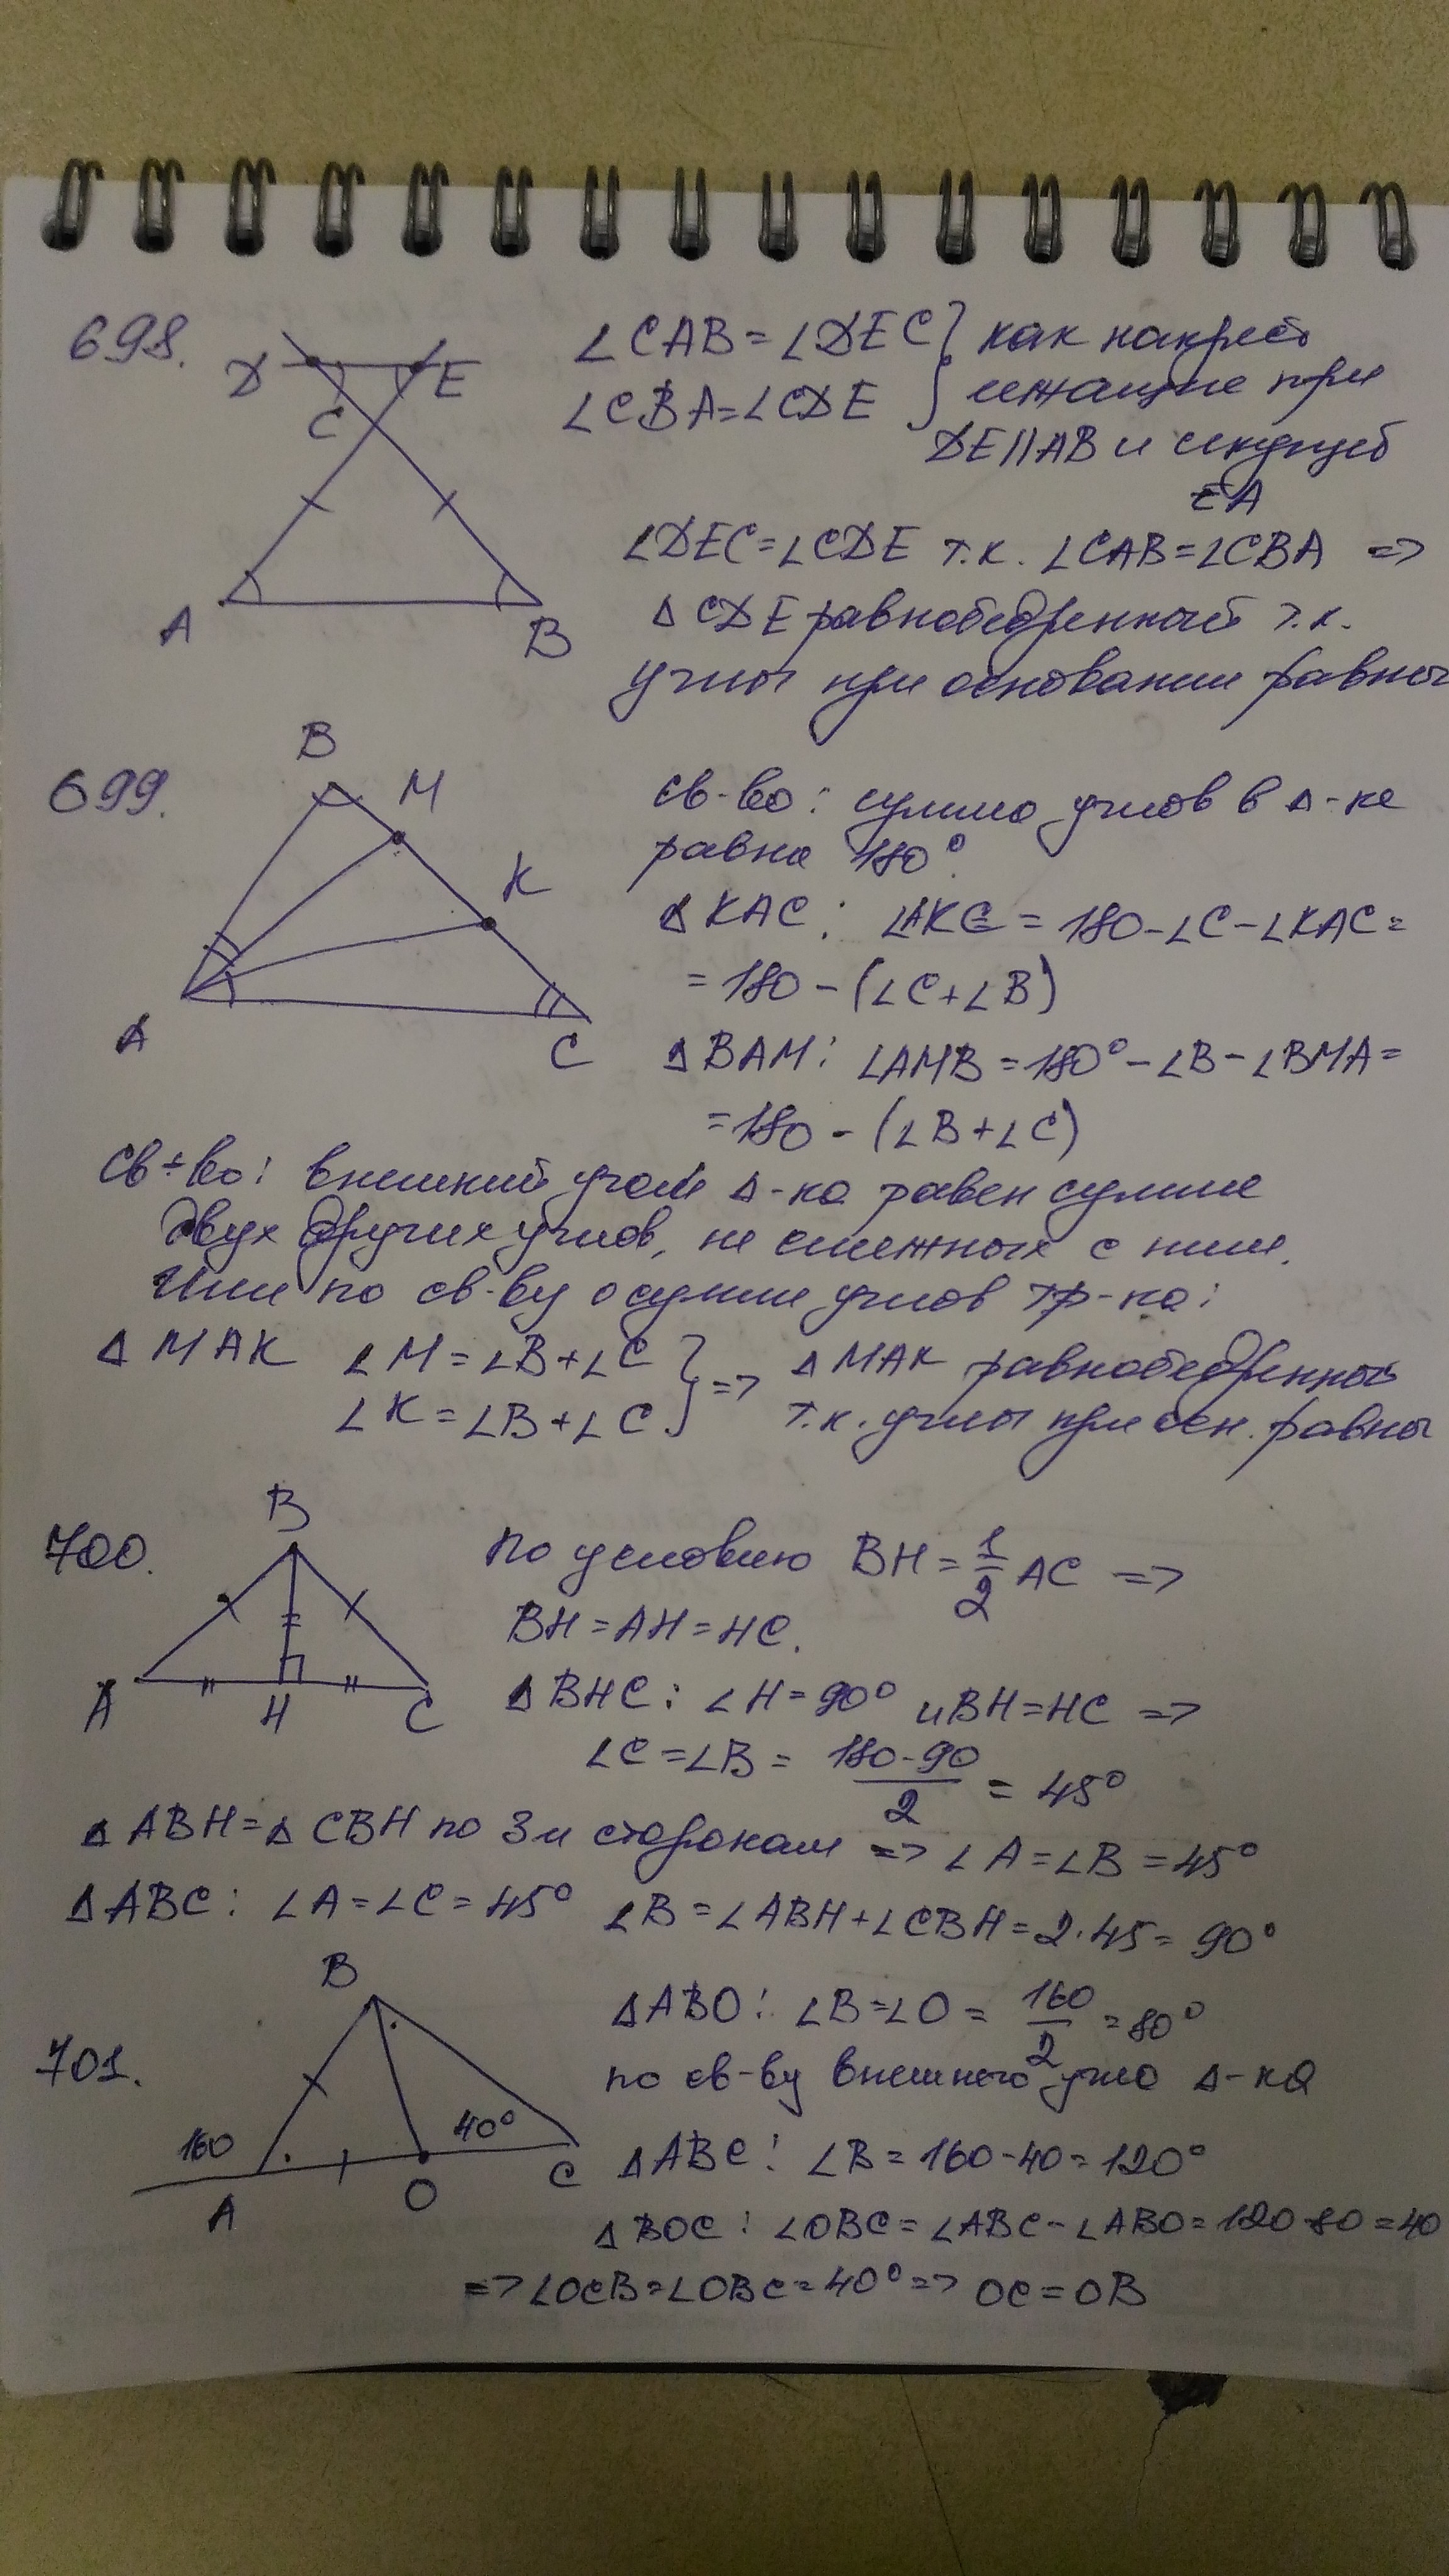 698.
D E
C
A B
∠CAB = ∠DEC } как накрест
∠CBA = ∠CDE лежащие при
DE || AB и секущей
EA
∠DEC = ∠CDE т.к. ∠CAB = ∠CBA =>
Δ CDE равнобедренный т.к.
углы при основании равны
699.
B M
K
A C
Св-во: сумма углов в Δ-ке
равна 180°.
Δ KAC: ∠AKC = 180 - ∠C - ∠KAC =
= 180 - (∠C + ∠B)
Δ BAM: ∠AMB = 180° - ∠B - ∠BMA =
= 180 - (∠B + ∠C)
Св-во: внешний угол Δ-ка равен сумме
двух других углов, не смежных с ним.
Или по св-ву о сумме углов тр-ка:
Δ MAK ∠M = ∠B + ∠C } => Δ MAK равнобедренный
∠K = ∠B + ∠C т.к. углы при осн. равны
700.
B
A H C
По условию BH = 1/2 AC =>
BH = AH = HC.
Δ BHC: ∠H = 90° и BH = HC =>
∠C = ∠B = (180-90)/2 = 45°
Δ ABH = Δ CBH по 3м сторонам => ∠A = ∠B = 45°
Δ ABC: ∠A = ∠C = 45° ∠B = ∠ABH + ∠CBH = 2·45 = 90°
701.
B
160 40°
A O C
Δ ABO: ∠B = ∠O = 160/2 = 80°
по св-ву внешнего угла Δ-ка
Δ ABC: ∠B = 160 - 40 = 120°
Δ BOC: ∠OBC = ∠ABC - ∠ABO = 120-80 = 40
=> ∠OCB = ∠OBC = 40° => OC = OB